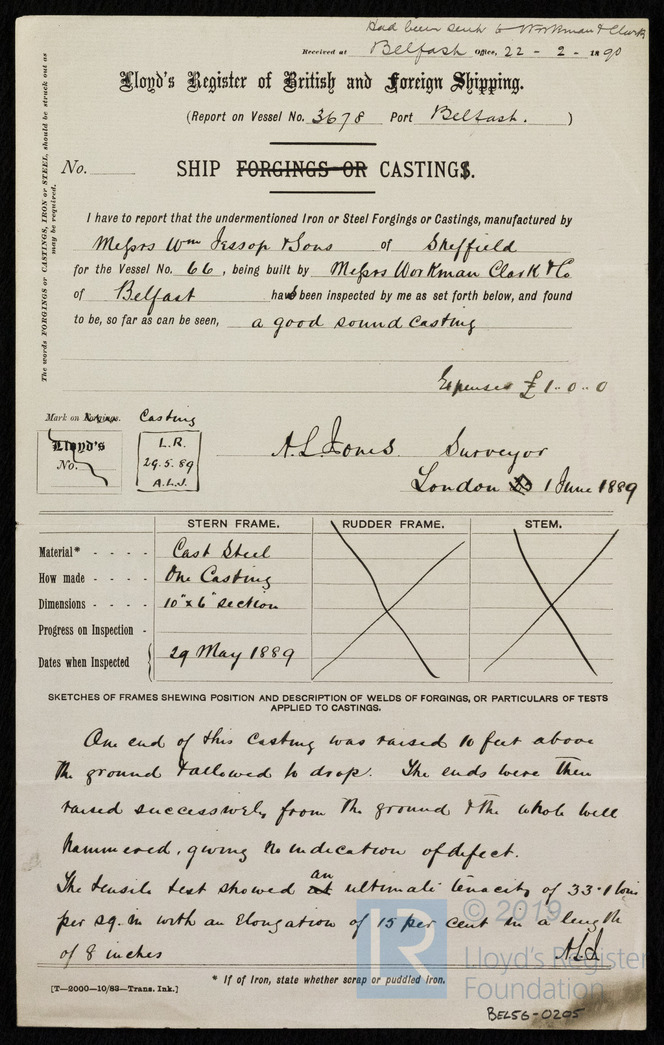 Had been sent to Workman & Clark
Received at Belfast Office, 22 - 2 - 1890
Lloyd's Register of British and Foreign Shipping.
(Report on Vessel No. 3678 Port Belfast. )
No. SHIP FORGINGS OR CASTINGS.
The words FORGINGS or CASTINGS, IRON or STEEL, should be struck out as
may be required.
I have to report that the undermentioned Iron or Steel Forgings or Castings, manufactured by
Messrs Wm Jessop & Sons of Sheffield
for the Vessel No. 66, being built by Messrs Workman Clark & Co
of Belfast has been inspected by me as set forth below, and found
to be, so far as can be seen, a good sound casting
Expenses £1..0..0
Mark on Forgings. Casting
Lloyd's
No.
L.R.
29.5.89
A.L.J.
A.L. Jones Surveyor
London 1 June 1889
STERN FRAME. RUDDER FRAME. STEM.
Material* - - - - Cast Steel
How made - - - - One Casting
Dimensions - - - - 10" x 6" section
Progress on Inspection -
Dates when Inspected 29 May 1889
SKETCHES OF FRAMES SHEWING POSITION AND DESCRIPTION OF WELDS OF FORGINGS, OR PARTICULARS OF TESTS
APPLIED TO CASTINGS.
One end of this casting was raised 10 feet above
the ground & allowed to drop. The ends were then
raised successively from the ground & the whole well
hammered, giving no indication of defect.
The tensile test showed an ultimate tenacity of 33.1 tons
per sq. in with an Elongation of 15 per cent in a length
of 8 inches ALJ
* If of Iron, state whether scrap or puddled iron.
[T—2000—10/83—Trans. Ink.]
LR © 2019
Lloyd's Register
Foundation
BEL56-0205